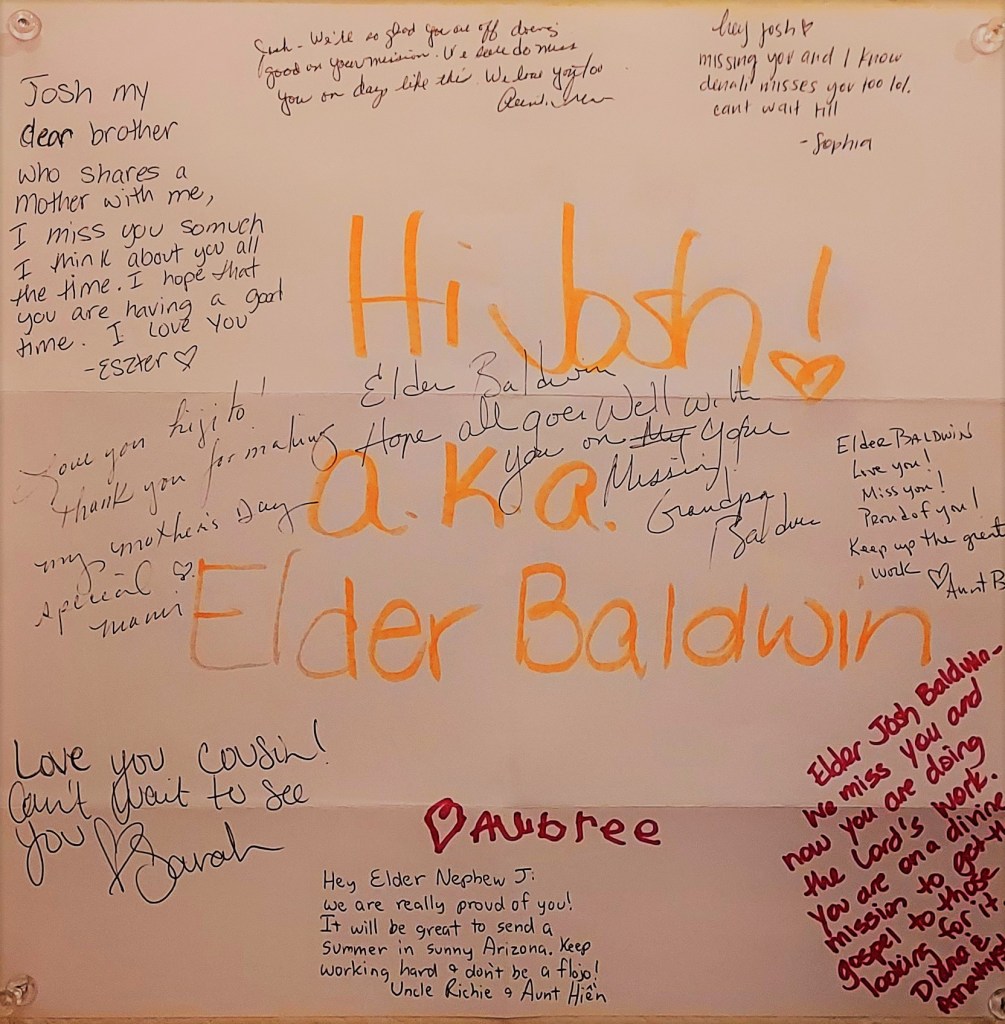 Josh - We're so glad you are off doing
good on your mission. We sure do miss
you on days like this. We love you too
hey josh ♡
missing you and I know
denali misses you too lol.
cant wait till
- Sophia
Josh my
dear brother
who shares a
mother with me,
I miss you somuch
I think about you all
the time. I hope that
you are having a good
time. I love you
- Eszter ♡
Hi Josh!
♡
Elder Baldwin
Hope all goes Well with
you on My Your
Missing!
Grandpa
Baldwin
Love you hijito!
thank you for making
my mother's Day
special ♡.
mami
a.k.a.
Elder Baldwin
Elder BALDWIN
Love you!
Miss you!
Proud of you!
Keep up the great
work ♡
Aunt B
Love you cousin!
Can't wait to see
you ♡ Sarah
♡ Aubree
Hey Elder Nephew J:
we are really proud of you!
It will be great to send a
summer in sunny Arizona. Keep
working hard & don't be a flojo!
Uncle Richie & Aunt Hiền
Elder Josh Baldwin-
We miss you and
now you are doing
the Lord's work.
You are on a divine
mission to get the
gospel to those
looking for it.